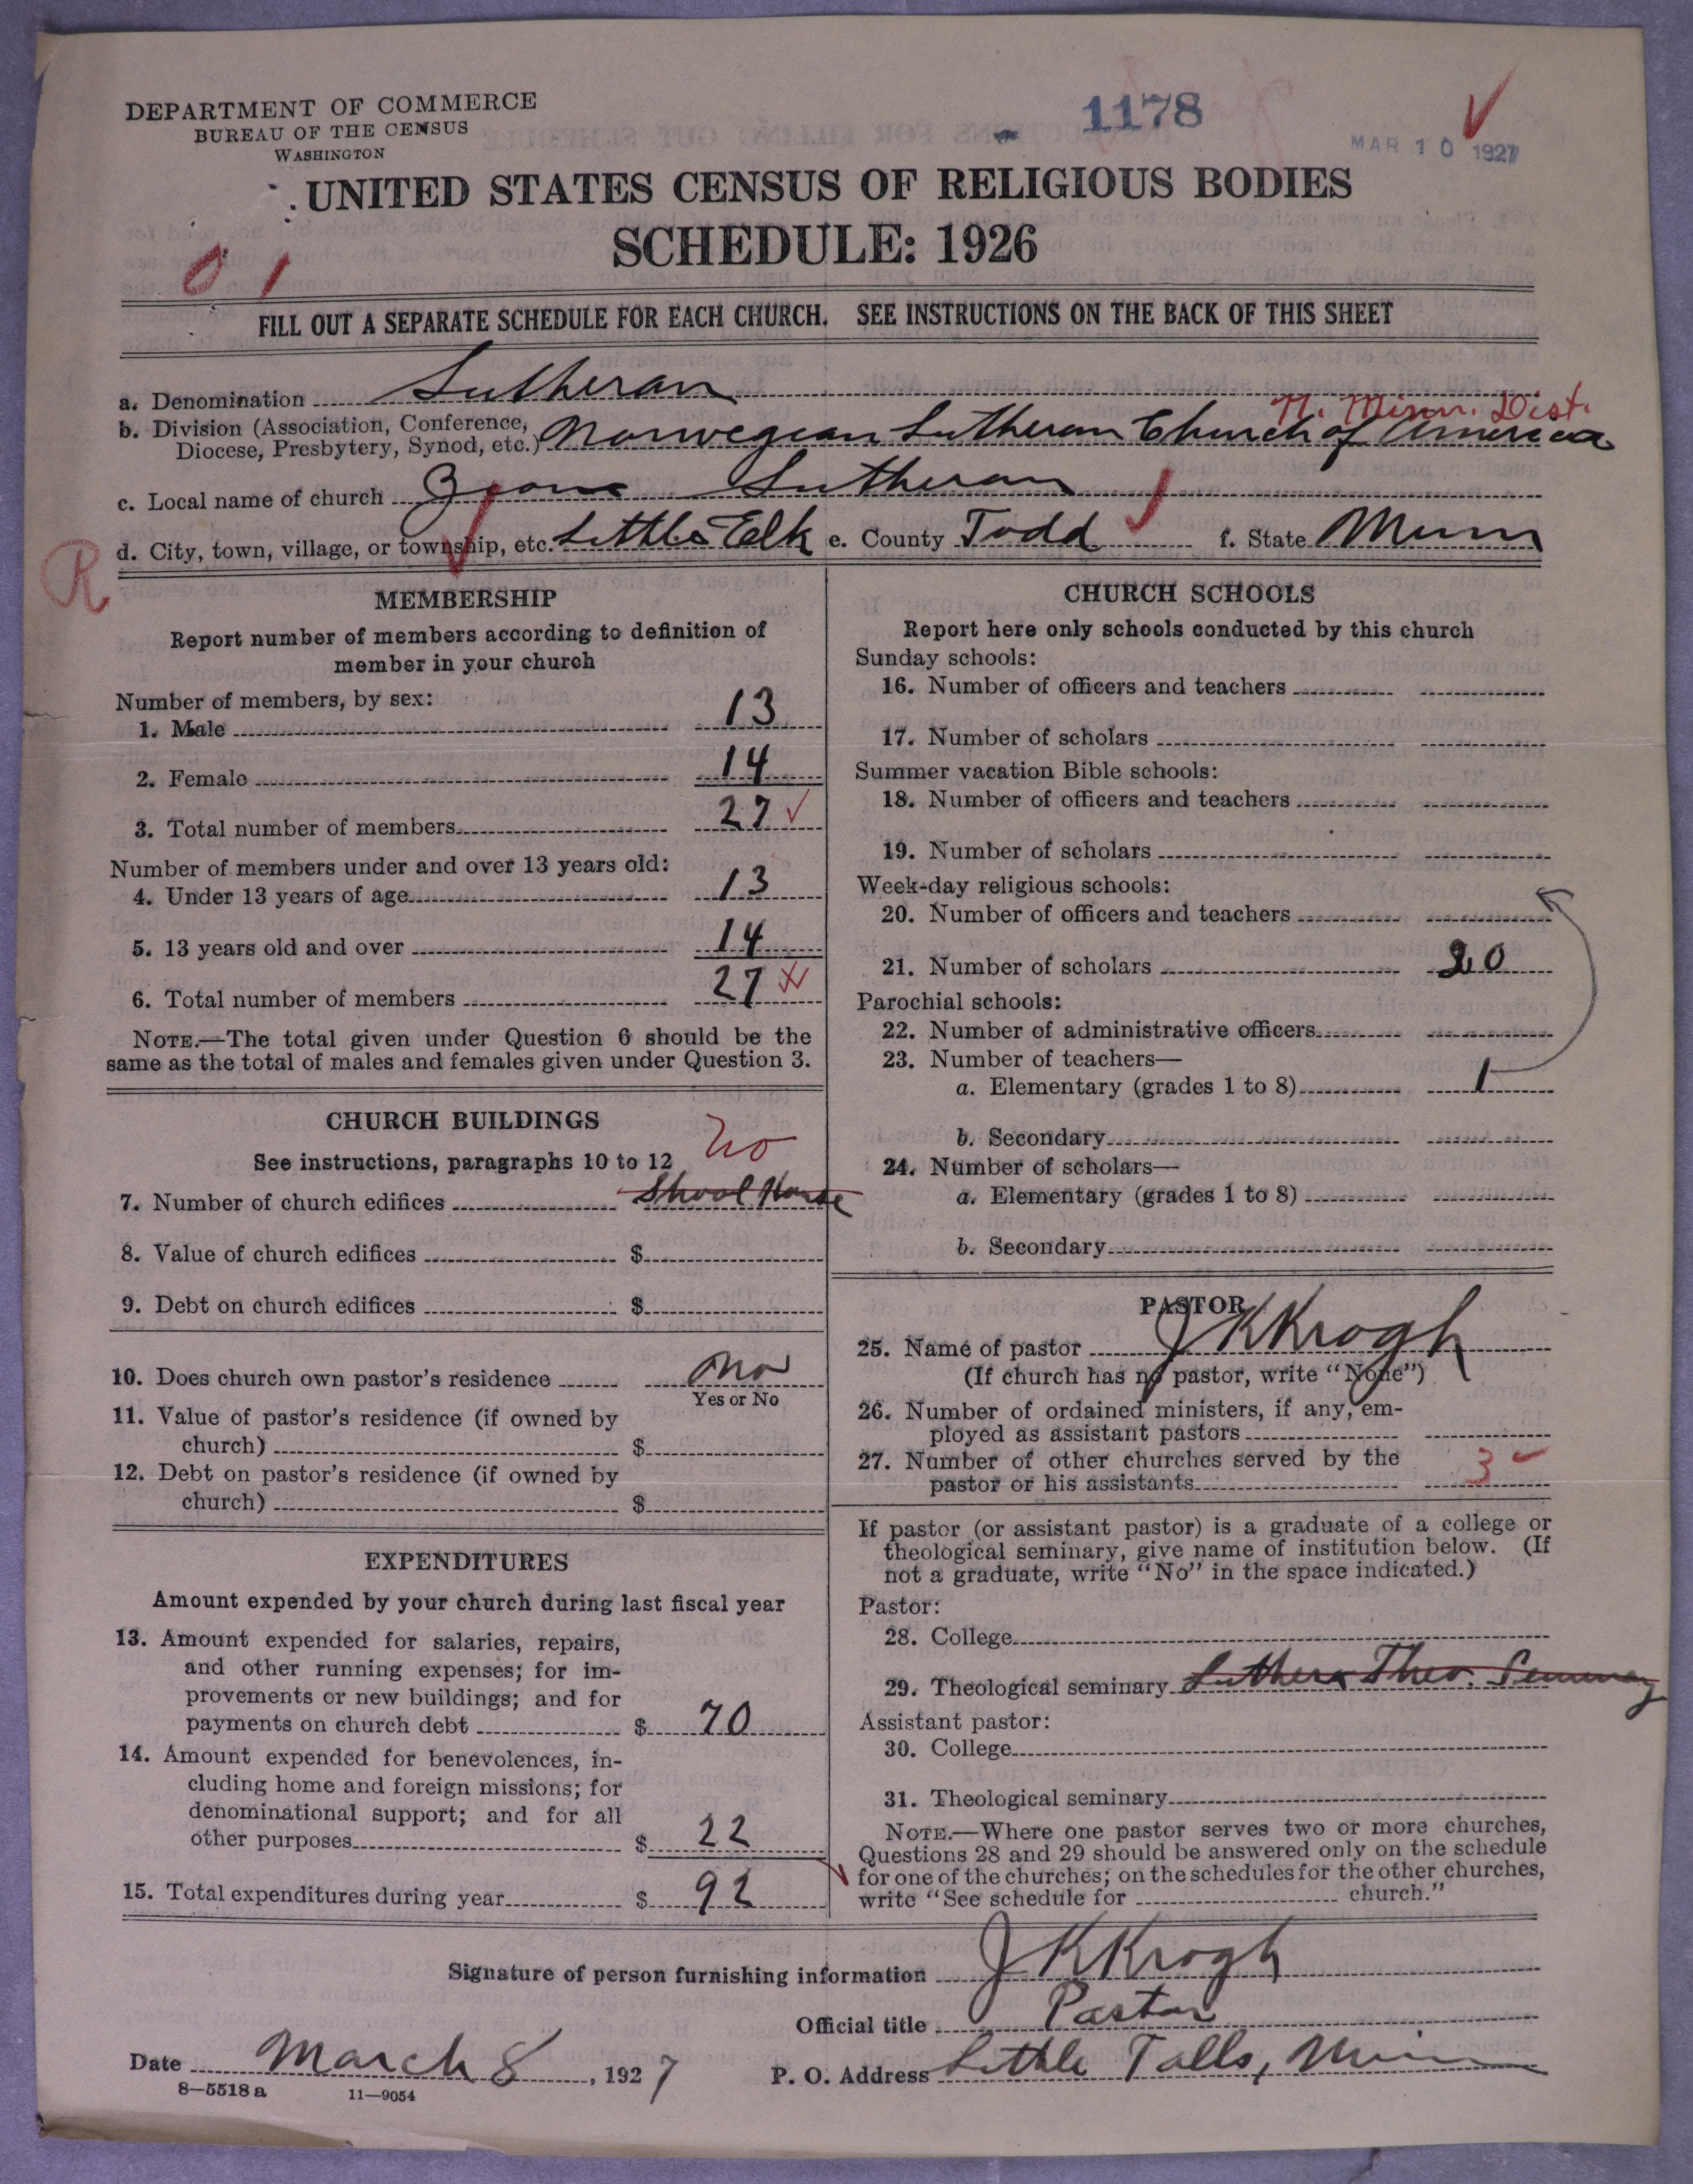 DEPARTMENT OF COMMERCE
BUREAU OF THE CENSUS
WASHINGTON
1178
MAR 10 1927
UNITED STATES CENSUS OF RELIGIOUS BODIES
SCHEDULE: 1926
0 1
FILL OUT A SEPARATE SCHEDULE FOR EACH CHURCH. SEE INSTRUCTIONS ON THE BACK OF THIS SHEET
a. Denomination Lutheran
N. Minn. Dist.
b. Division (Association, Conference, Diocese, Presbytery, Synod, etc.) Norwegian Lutheran Church of America
c. Local name of church Zions Lutheran
R
d. City, town, village, or township, etc. Little Elk e. County Todd f. State Minn
MEMBERSHIP
Report number of members according to definition of
member in your church
Number of members, by sex:
1. Male 13
2. Female 14
3. Total number of members 27
Number of members under and over 13 years old:
4. Under 13 years of age 13
5. 13 years old and over 14
6. Total number of members 27
NOTE.—The total given under Question 6 should be the
same as the total of males and females given under Question 3.
CHURCH BUILDINGS
See instructions, paragraphs 10 to 12
no
7. Number of church edifices Shool House
8. Value of church edifices $
9. Debt on church edifices $
10. Does church own pastor's residence no
Yes or No
11. Value of pastor's residence (if owned by
church) $
12. Debt on pastor's residence (if owned by
church) $
EXPENDITURES
Amount expended by your church during last fiscal year
13. Amount expended for salaries, repairs,
and other running expenses; for im-
provements or new buildings; and for
payments on church debt $ 70
14. Amount expended for benevolences, in-
cluding home and foreign missions; for
denominational support; and for all
other purposes $ 22
15. Total expenditures during year $ 92
CHURCH SCHOOLS
Report here only schools conducted by this church
Sunday schools:
16. Number of officers and teachers
17. Number of scholars
Summer vacation Bible schools:
18. Number of officers and teachers
19. Number of scholars
Week-day religious schools:
20. Number of officers and teachers
21. Number of scholars 20
Parochial schools:
22. Number of administrative officers
23. Number of teachers—
a. Elementary (grades 1 to 8) 1
b. Secondary
24. Number of scholars—
a. Elementary (grades 1 to 8)
b. Secondary
PASTOR
25. Name of pastor J K Krogh
(If church has no pastor, write "None")
26. Number of ordained ministers, if any, em-
ployed as assistant pastors
27. Number of other churches served by the
pastor or his assistants 3
If pastor (or assistant pastor) is a graduate of a college or
theological seminary, give name of institution below. (If
not a graduate, write "No" in the space indicated.)
Pastor:
28. College
29. Theological seminary Luthera Theo. Seminary
Assistant pastor:
30. College
31. Theological seminary
NOTE.—Where one pastor serves two or more churches,
Questions 28 and 29 should be answered only on the schedule
for one of the churches; on the schedules for the other churches,
write "See schedule for church."
Signature of person furnishing information J K Krogh
Official title Pastor
Date March 8, 1927 P. O. Address Little Falls, Minn
8—5518 a 11—9054